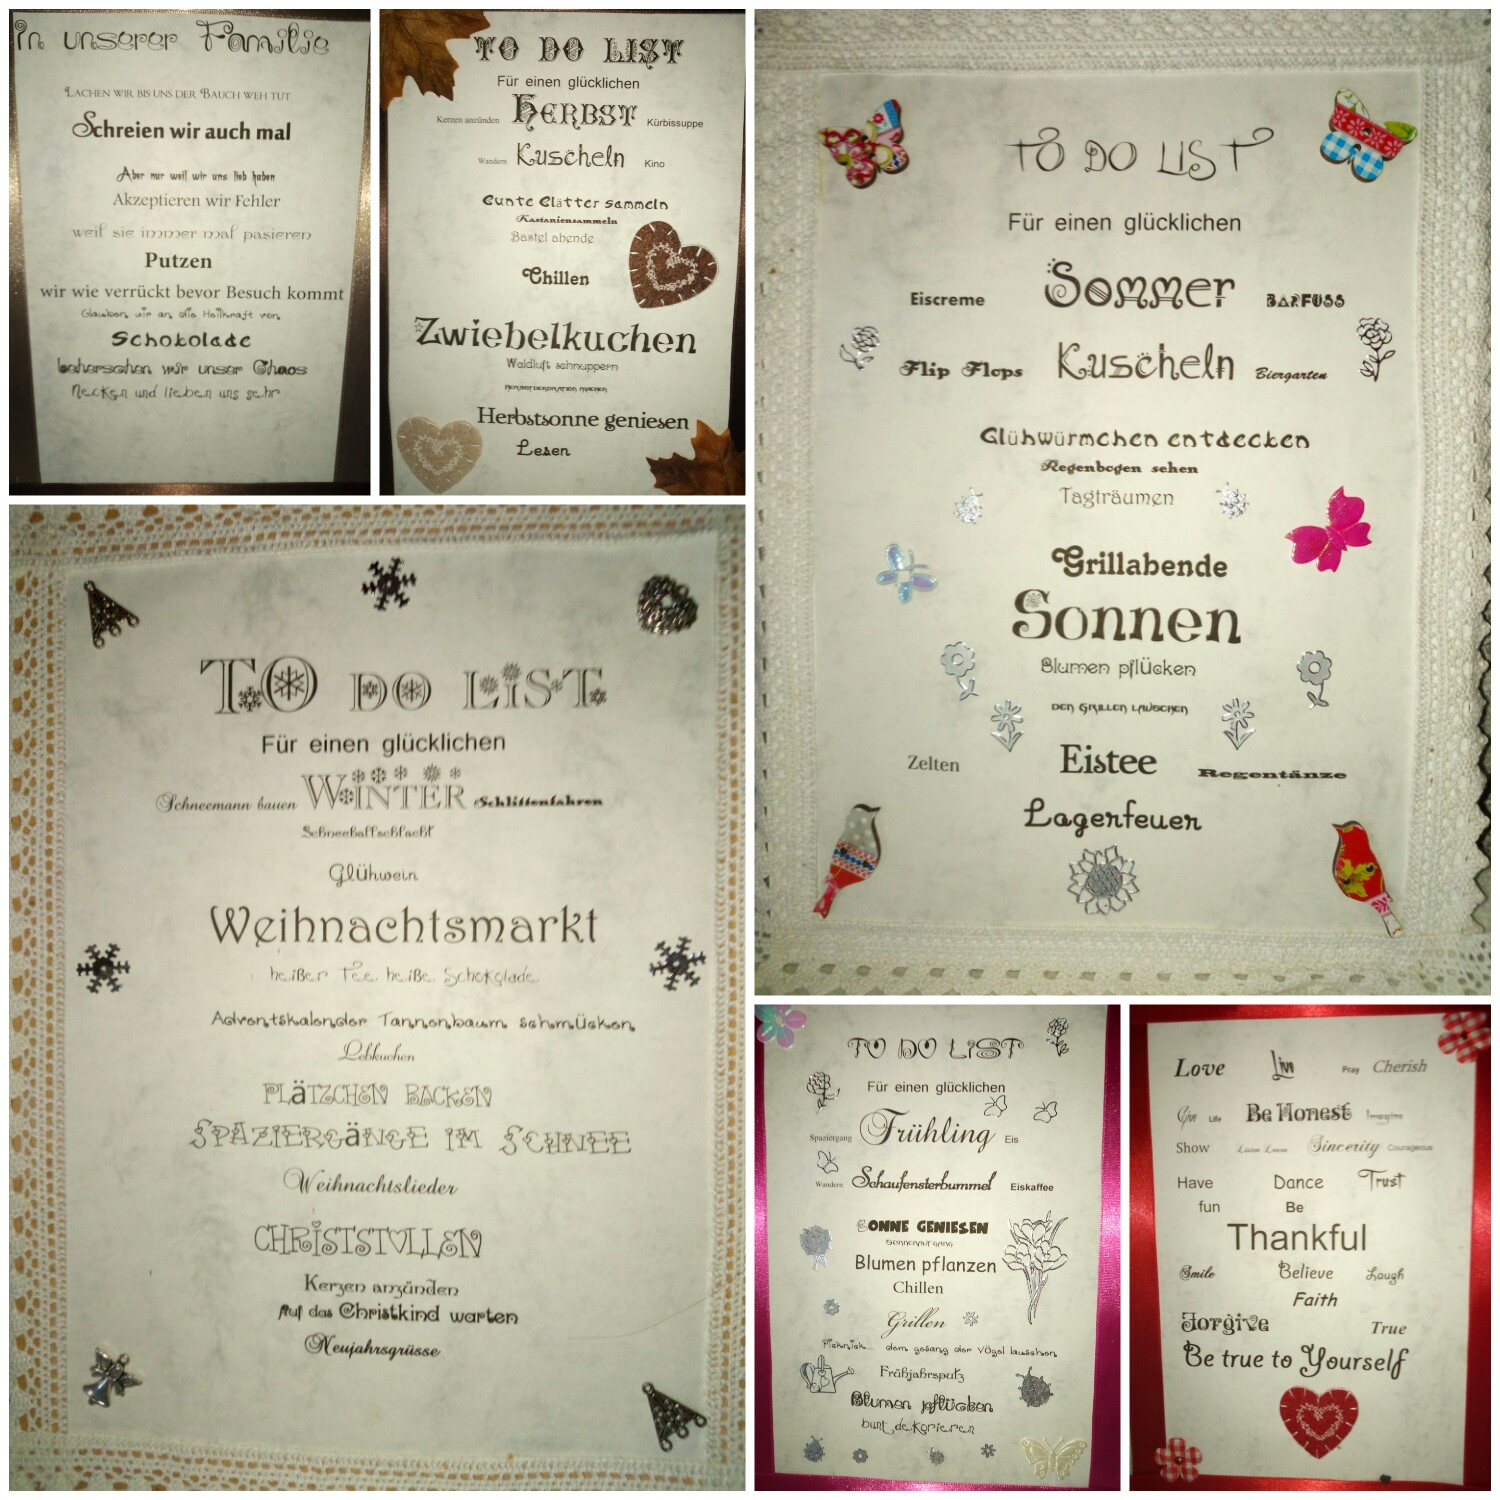 In unserer Familie
Lachen wir bis uns der Bauch weh tut
Schreien wir auch mal
Aber nur weil wir uns lieb haben
Akzeptieren wir Fehler
weil sie immer mal pasieren
Putzen
wir wie verrückt bevor Besuch kommt
Glauben wir an die Heilkraft von
Schokolade
beherschen wir unser Chaos
Necken und lieben uns sehr
TO DO LIST
Für einen glücklichen
Kerzen anzünden Herbst Kürbissuppe
Wandern Kuscheln Kino
Bunte Blätter sammeln
Kastaniensammeln
Bastel abende
Chillen
Zwiebelkuchen
Waldluft schnuppern
Herbstdekoration machen
Herbstsonne geniesen
Lesen
TO DO LIST
Für einen glücklichen
Eiscreme Sommer BARFUSS
Flip Flops Kuscheln Biergarten
Glühwürmchen entdecken
Regenbogen sehen
Tagträumen
Grillabende
Sonnen
Blumen pflücken
den Grillen lauschen
Zelten Eistee Regentänze
Lagerfeuer
TO DO LIST
Für einen glücklichen
Schneemann bauen Winter Schlittenfahren
Schneeballschlacht
Glühwein
Weihnachtsmarkt
heißer Tee heiße Schokolade
Adventskalender Tannenbaum schmücken
Lebkuchen
PLäTZCHEN BACKEN
SPAZIERGäNGE IM SCHNEE
Weihnachtslieder
CHRISTSTOLLEN
Kerzen anzünden
Auf das Christkind warten
Neujahrsgrüsse
TO DO LIST
Für einen glücklichen
Spaziergang Frühling Eis
Wandern Schaufensterbummel Eiskaffee
SONNE GENIESEN
Sonnenaufgang
Blumen pflanzen
Chillen
Grillen
Picknick dem gesang der Vögel lauschen
Frühjahrsputz
Blumen pflücken
bunt dekorieren
Love Live Pray Cherish
Give Life Be Honest Imagine
Show Sincerity Courageous
Have Dance Trust
fun Be
Thankful
Smile Believe Laugh
Faith
Forgive True
Be true to Yourself